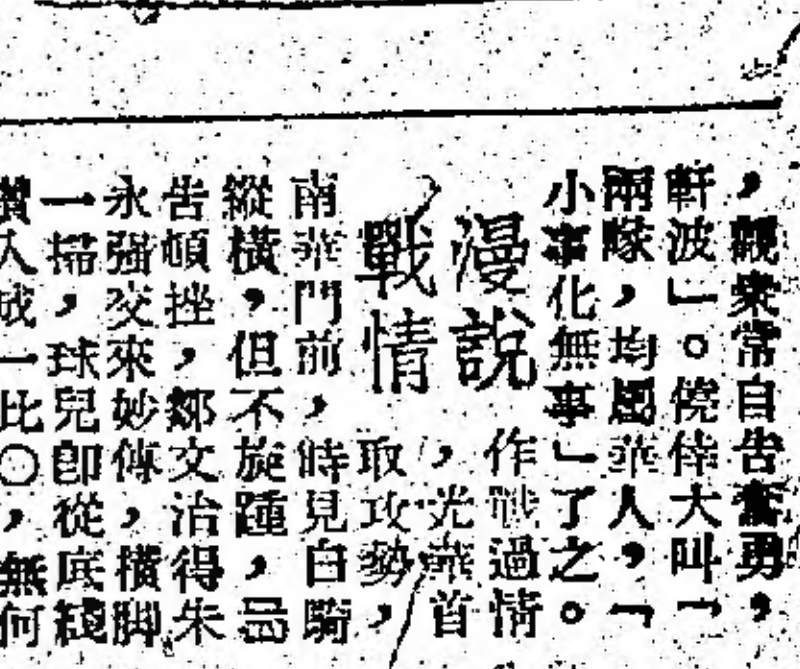 ，觀衆常自告奮勇，
軒波」。僥倖大叫「
兩隊，均屬華人，「
小事化無事」了之。
漫說
戰情
作戰過情
，光華首
取攻勢，
南華門前，時見白騎
縱橫，但不旋踵，
告頓挫，鄒文治得朱
永强交來妙傳，橫脚
一掃，球兒卽從底綫
入成一比〇，無何